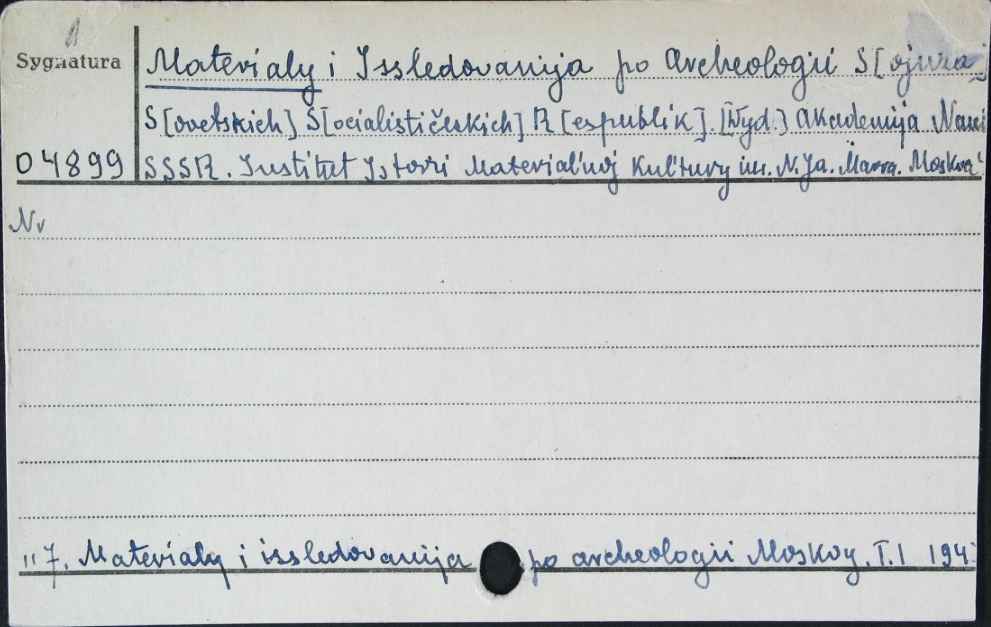 1
Sygnatura
Materialy i Issledovanija po Archeologii S[ojuza]
S[ovetskich] S[ocialističeskich] R[espublik]. [Wyd.] Akademija Nauk
04899
SSSR. Institut Istorii Material'noj Kul'tury im. N. Ja. Marra. Moskva
Nr
"7. Materialy i issledovanija po archeologii Moskvy. T. I 194